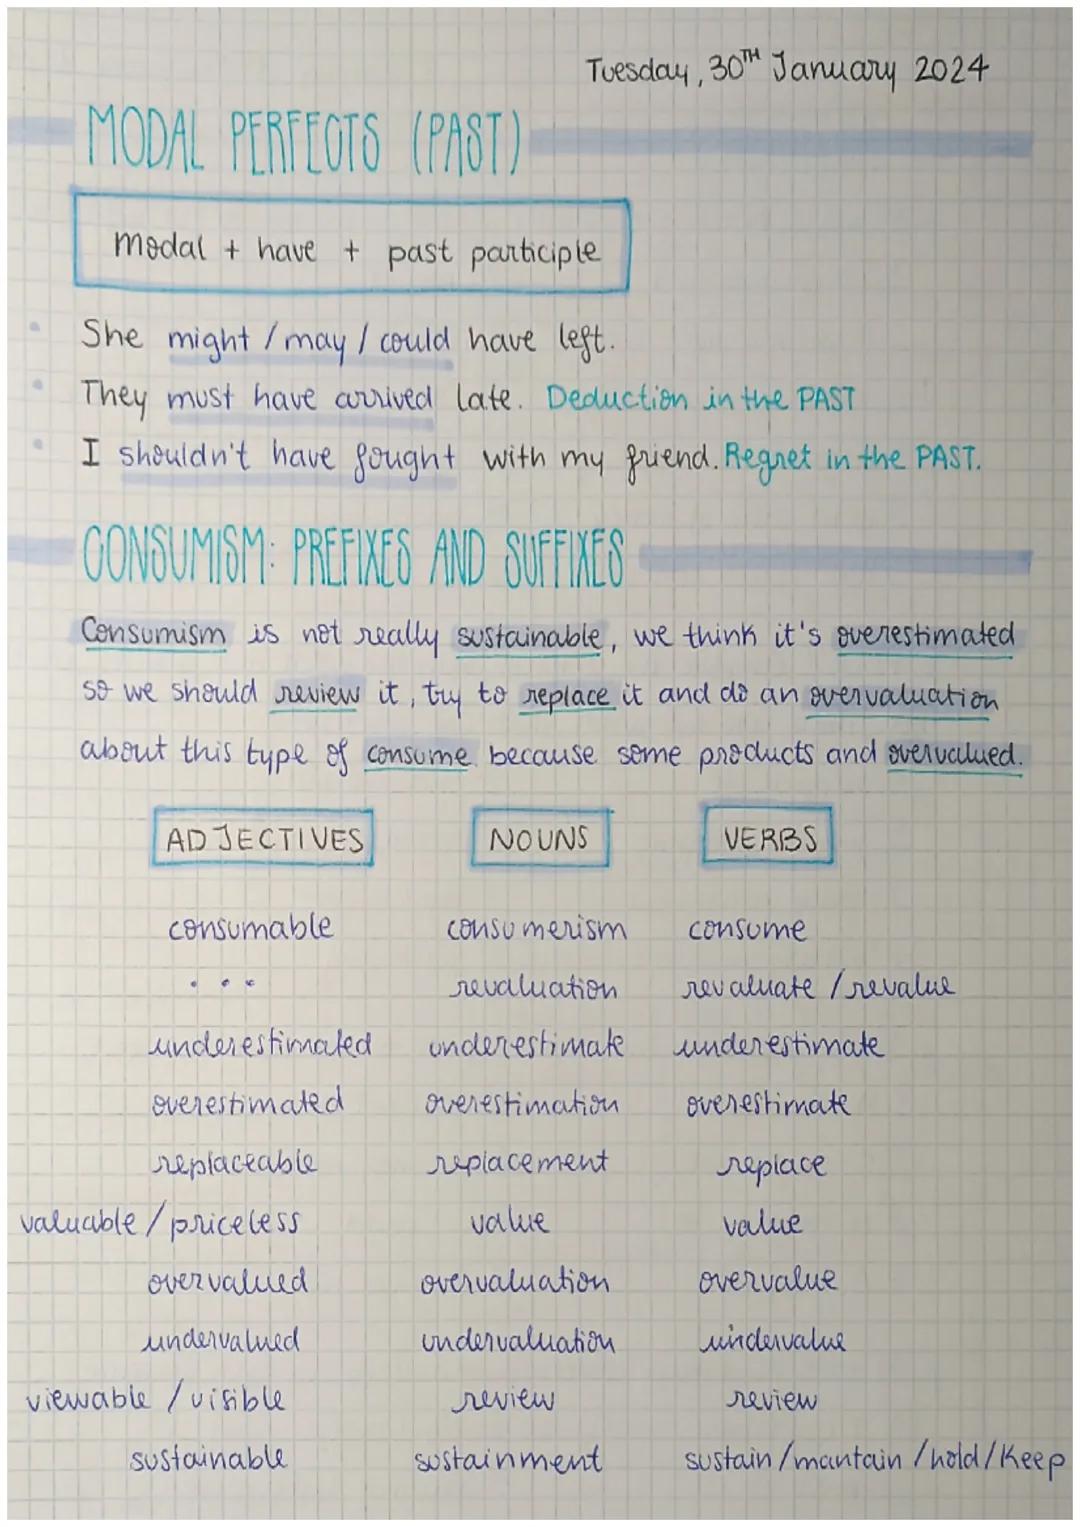 Tuesday, 30TH January 2024
MODAL PERFECTS (PAST)
modal + have + past participle
• She might / may / could have left.
• They must have arrived late. Deduction in the PAST
• I shouldn't have fought with my friend. Regret in the PAST.
CONSUMISM: PREFIXES AND SUFFIXES
Consumism is not really sustainable, we think it's overestimated
so we should review it, try to replace it and do an overvaluation
about this type of consume because some products and overvalued.
ADJECTIVES NOUNS VERBS
consumable consumerism consume
... revaluation revaluate / revalue
underestimated underestimate underestimate
overestimated overestimation overestimate
replaceable replacement replace
valuable / priceless value value
overvalued overvaluation overvalue
undervalued undervaluation undervalue
viewable / visible review review
sustainable sustainment sustain / mantain / hold / Keep